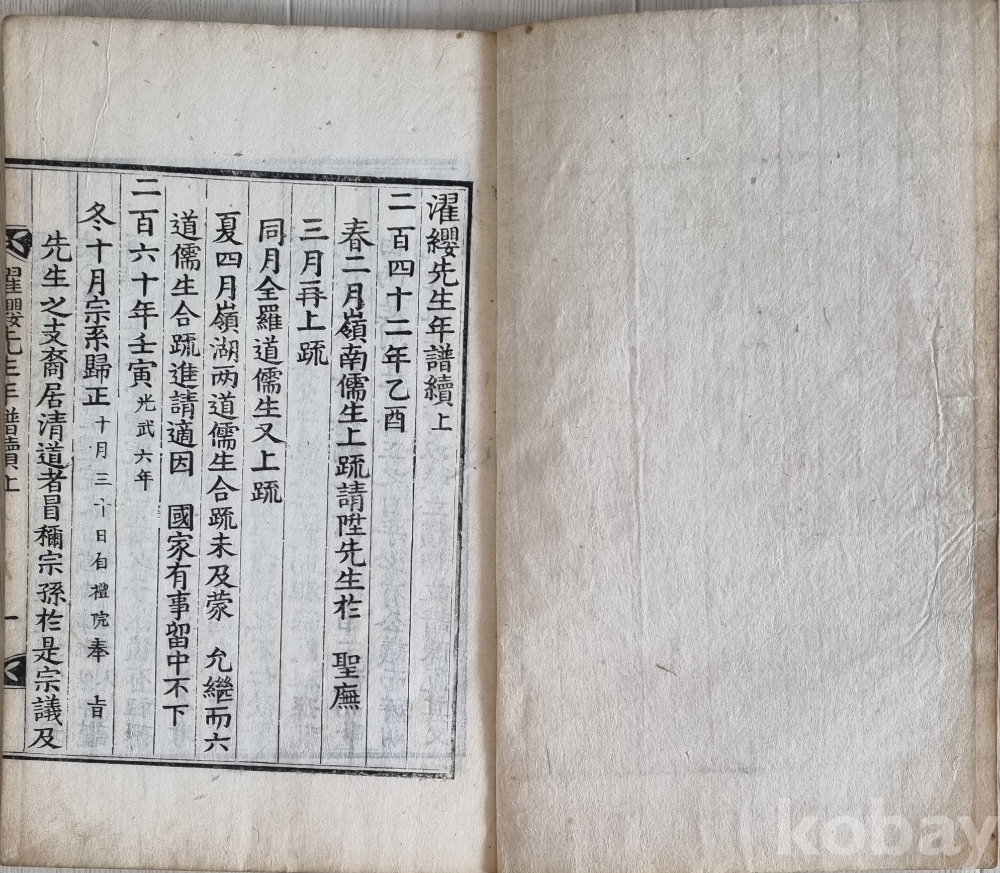 濯纓先生年譜續上
二百四十二年乙酉
春二月嶺南儒生上疏請陞先生於 聖廡
三月再上疏
同月全羅道儒生又上疏
夏四月嶺湖两道儒生合疏未及蒙 允繼而六
道儒生合疏進請適因 國家有事留中不下
二百六十年壬寅光武六年
冬十月宗系歸正十月三十日自禮院奉 旨
先生之支裔居清道者冒稱宗孫於是宗議及
濯纓先生年譜續上 一
kobay